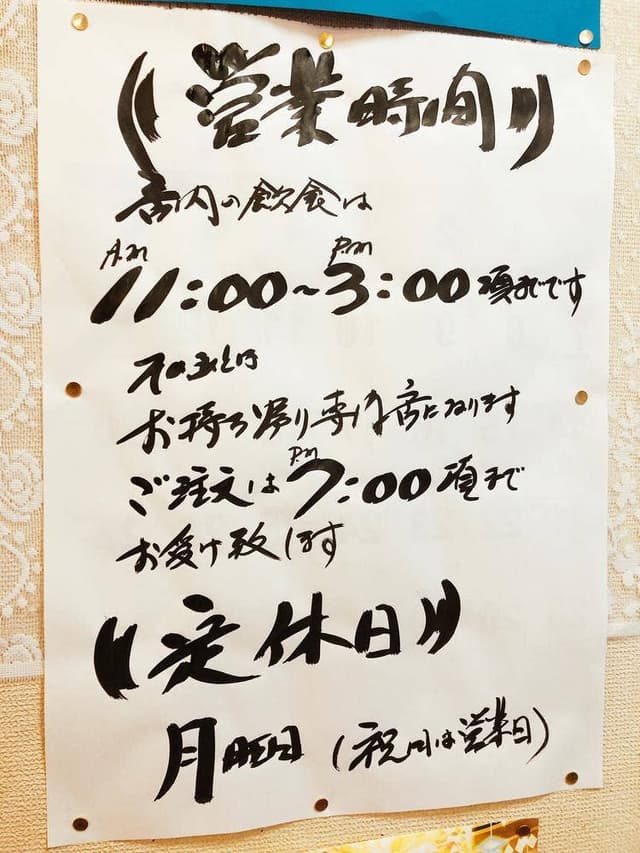 《営業時間》
店内の飲食は
A.m 11:00~P.m 3:00頃までです
その後は
お持ち帰り専門店になります
ご注文はP.m 7:00頃まで
お受け致します
《定休日》
月曜日 (祝日は営業日)